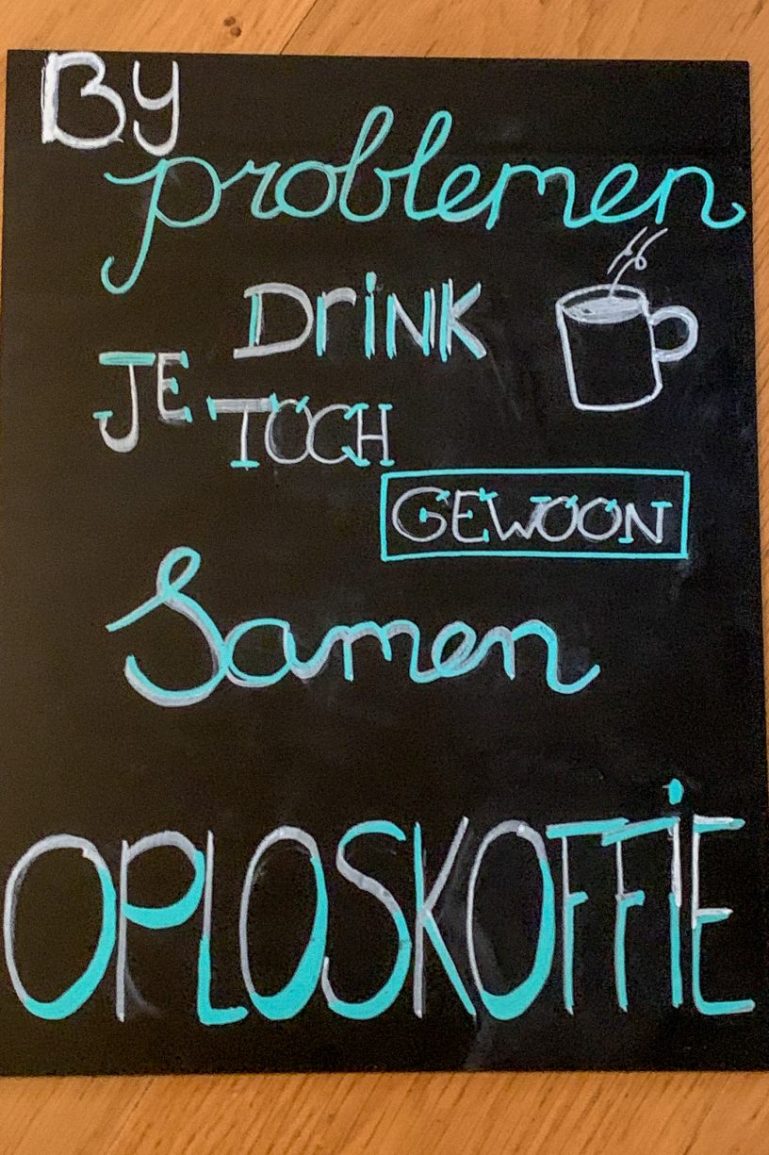 By
problemen
DRINK
JE TOCH
GEWOON
Samen
OPLOSKOFFIE